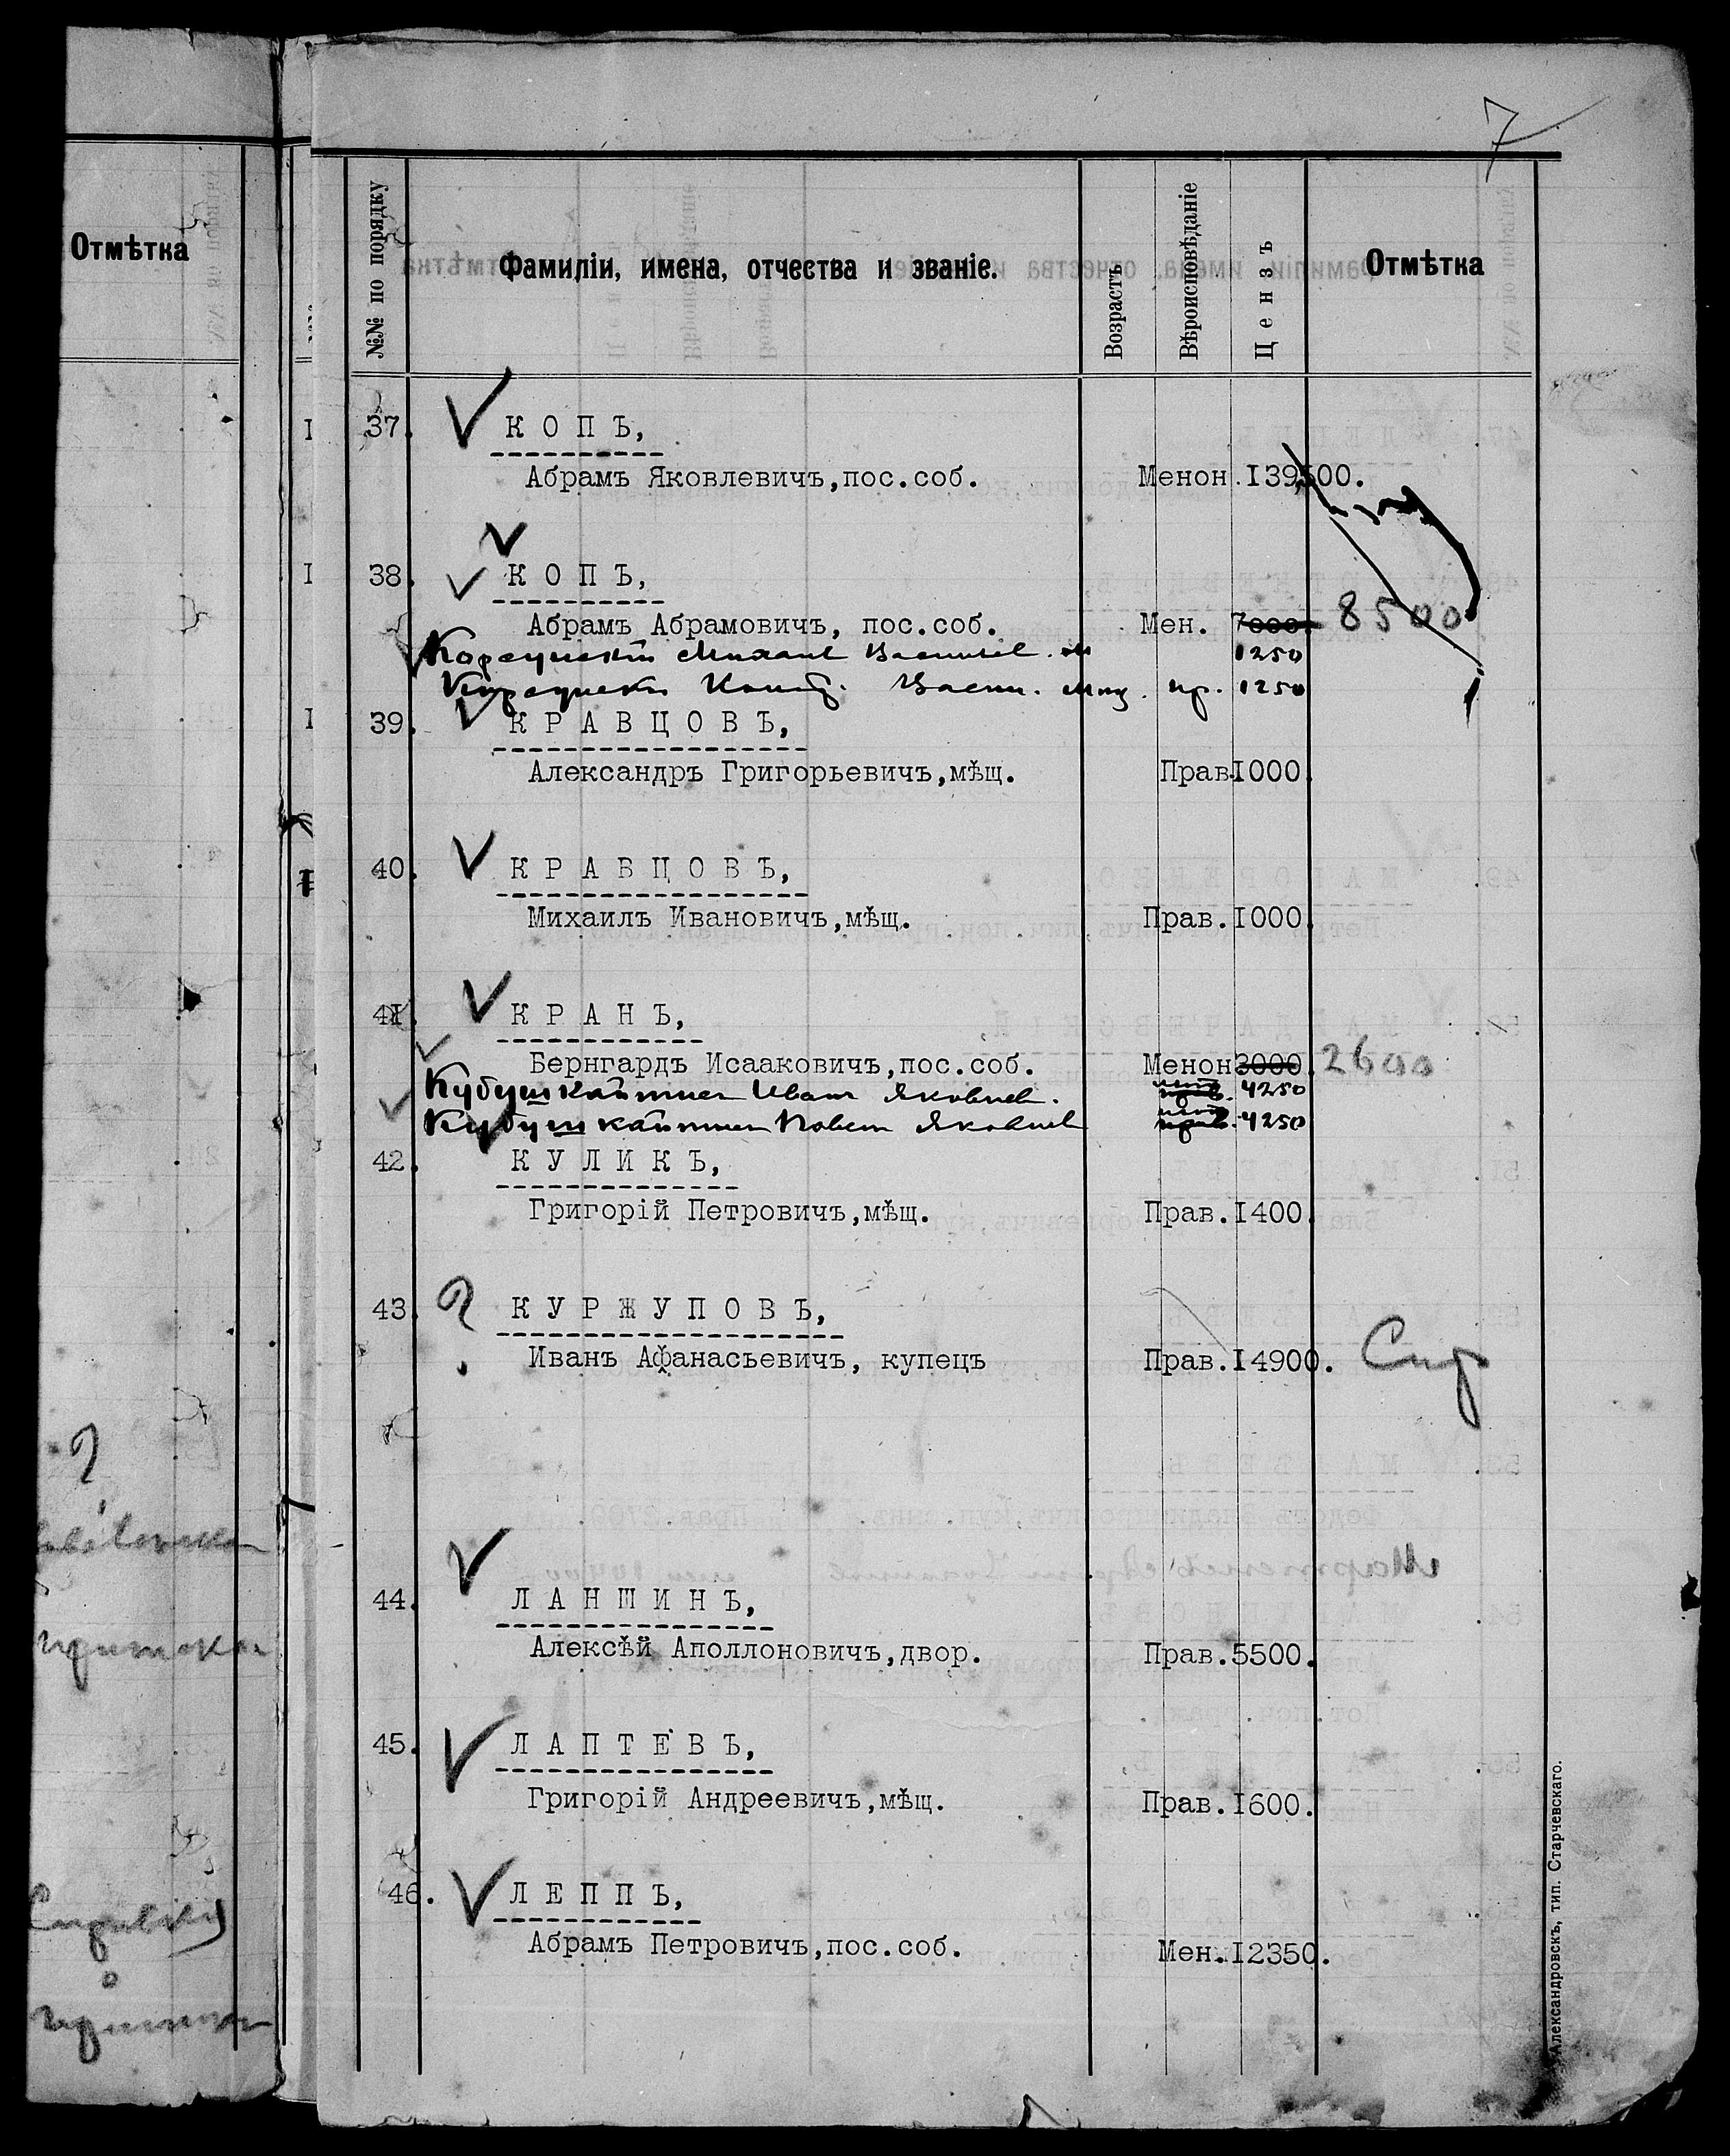 7
Отмѣтка
№№ по порядку
Фамиліи, имена, отчества и званіе.
Возрастъ
Вѣроисповѣданіе
Цензъ
Отмѣтка
37. КОПЪ,
Абрамъ Яковлевичъ,пос.соб. Менон.139500.
38. КОПЪ,
Абрамъ Абрамовичъ, пос.соб. Мен. 7000. 8500
1250
пр. 1250
39. КРАВЦОВЪ,
Александръ Григорьевичъ,мѣщ. Прав.1000.
40. КРАВЦОВЪ,
Михаилъ Ивановичъ,мѣщ. Прав.1000.
41. КРАНЪ,
Бернгардъ Исааковичъ,пос.соб. Менон 3000. 2600
Иван Яковлев. 4250
Яковлев 4250
42. КУЛИКЪ,
Григорій Петровичъ,мѣщ. Прав.1400.
43. ? КУРЖУПОВЪ,
Иванъ Афанасьевичъ, купецъ Прав.14900. Спр
44. ЛАНШИНЪ,
Алексѣй Аполлоновичъ,двор. Прав.5500.
45. ЛАПТЕВЪ,
Григорій Андреевичъ,мѣщ. Прав.1600.
46. ЛЕППЪ,
Абрамъ Петровичъ,пос.соб. Мен.12350.
Александровскъ, тип. Старчевскаго.